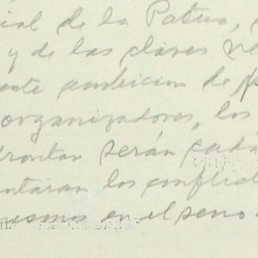 cial de la Patria,
y de las clases
ambicion de
organizadores, los
frontar serán cada
ntaran los conflict
mismos en el seno